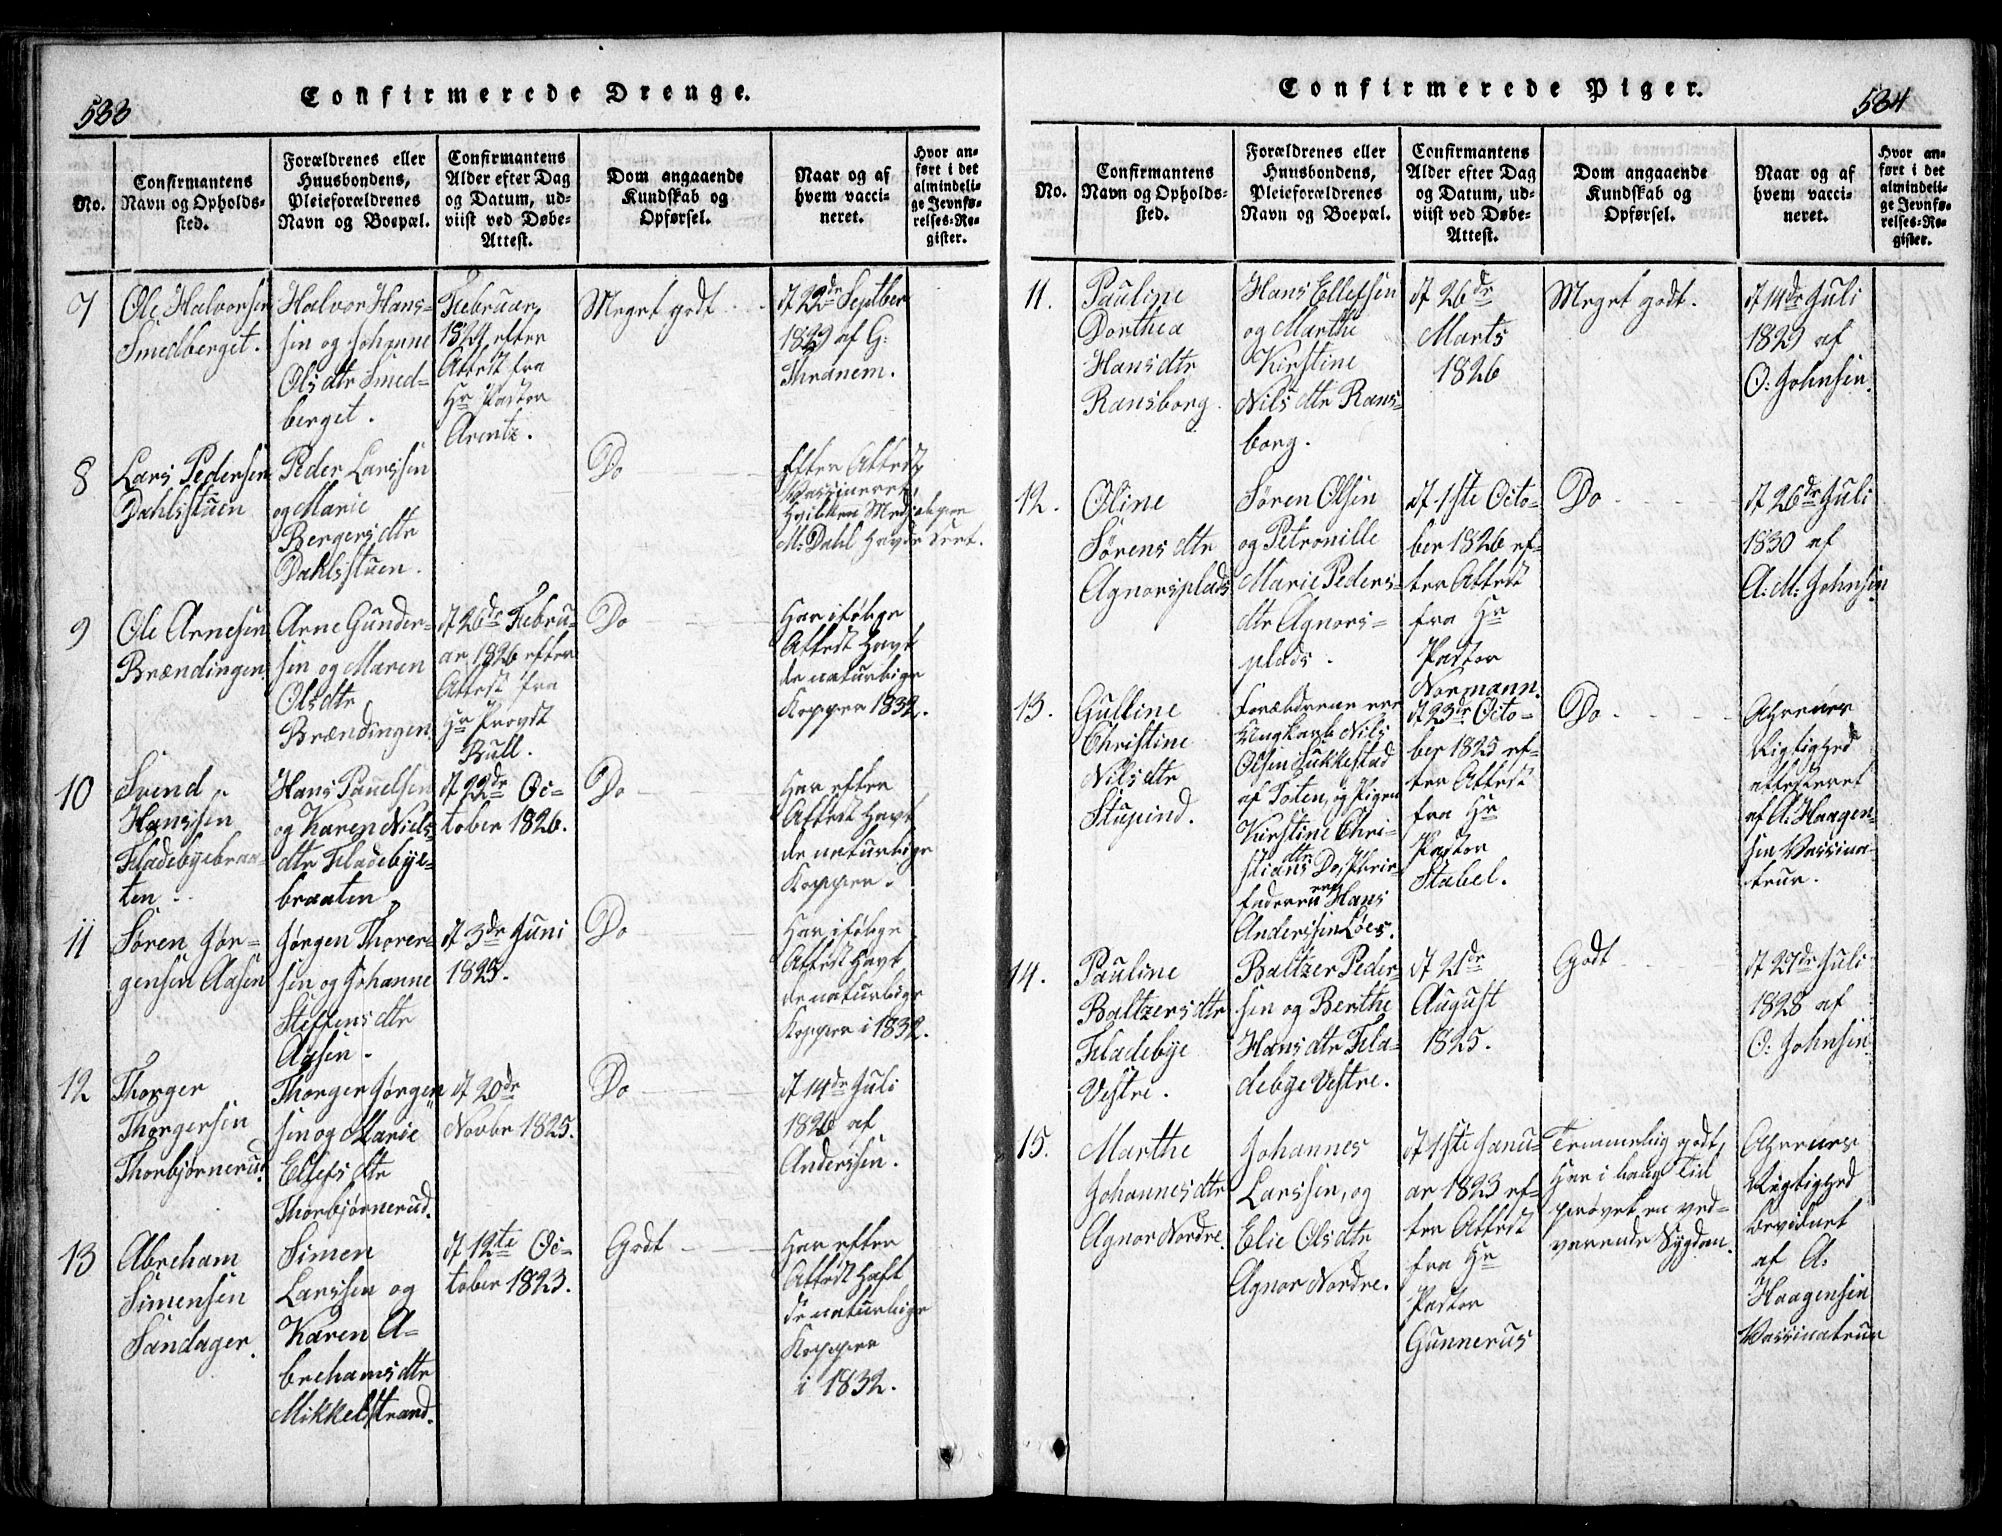 533
Confirmerede Drenge.
No.
Confirmantens
Navn og Opholds-
sted.
Forældrenes eller
Huusbondens,
Pleieforældrenes
Navn og Boepæl.
Confirmantens
Alder efter Dag
og Datum, ud-
viist ved Døbe-
Attest.
Dom angaaende
Kundskab og
Opførsel.
Naar og af
hvem vacci-
neret.
Hvor an-
ført i det
almindeli-
ge Jevnfø-
relses-Re-
gister.
7
Ole Halvorsen
Smedberget.
Halvor Hans-
sen og Johanne
Olsdtr Smed-
berget.
Februar
1824 efter
Attest fra
Hr Pastor
Arentz.
Meget godt
d 22de Septber
1829 af G:
Thranem.
8
Lars Pedersen
Dahlsstuen
Peder Larssen
og Marie
Bergersdtr
Dahlsstuen.
Do
Efter Attest
Vaccineret,
M: Dahl Havde
9
Ole Arnesen
Brændingen
Arne Gunder-
sen og Maren
Olsdtr
Brændingen
d 26de Febru-
ar 1826 efter
Attest fra
Hr Provst
Bull.
Do
Har ifølge
Attest Havt
de naturlige
Kopper 1832.
10
Svend
Hanssen
Fladebyebraa-
ten.
Hans Pauelsen
og Karen Niels-
dtr Fladebye-
braaten.
d 22de Oc-
tober 1826.
Do
Har efter
Attest Havt
de naturlige
Kopper.
11
Søren Jør-
gensen Aasen
Jørgen Thorer-
sen og Johanne
Steffensdtr
Aasen.
d 3de Juni
1825.
Do
Har ifølge
Attest Havt
de naturlige
Kopper i 1832.
12
Thorger
Thorgersen
Thorbjørnerud.
Thorger Jørgen
sen og Marie
Ellefsdtr
Thorbjørnerud.
d 20de
Novbr 1825.
Do
d 14de Juli
1826 af
Anderssen.
13
Abreham
Simensen
Sandager.
Simen
Larssen og
Karen A-
brehamsdtr
Mikkelstrand.
d 12te Oc-
tober 1823.
Godt
Har efter
Attest Haft
de naturlige
Kopper
i 1832.
Confirmerede Piger.
534
No.
Confirmantens
Navn og Opholds-
sted.
Forældrenes eller
Huusbondens,
Pleieforældrenes
Navn og Boepæl.
Confirmantens
Alder efter Dag
og Datum, ud-
viist ved Døbe-
Attest.
Dom angaaende
Kundskab og
Opførsel.
Naar og af
hvem vacci-
neret.
Hvor an-
ført i det
almindeli-
ge Jevnfø-
relses-Re-
gister.
11.
Pauline
Dorthea
Hansdtr
Ransborg.
Hans Ellefsen
og Marthe
Kirstine
Nilsdtr Rans-
borg.
d 26de
Marts
1826
Meget godt.
d 14de Juli
1829 af
O: Johnsen.
12.
Oline
Sørensdtr
Agnorsplads
Søren Olsen
og Petronille
Marie Peders-
dtr Agnors-
plads.
d 1ste Octo-
ber 1826 ef-
ter Attest
fra Hr
Pastor
Normann.
Do
d 26de Juli
1830 af
A: M: Johnsen
13.
Gulline
Christine
Nilsdtr
Stupind.
Forældrene ere
Ungkarl Nils
Olsen Sukkestad
af Toten, og Pigen
Kirstine Chri-
stiansdtr Do, Pleie-
faderen er Hans
Anderssen Løes.
d 23de Octo-
ber 1825 ef-
ter Attest
fra Hr
Pastor
Stabel.
Do
Rigtighed
attesteret
af A: Haagen-
sen Vaccina-
teur.
14.
Pauline
Baltzersdtr
Fladebye
Vestre.
Baltzer Peder-
sen og Berthe
Hansdtr Fla-
debye Vestre.
d 21de
August
1825.
Godt
d 27de Juli
1828 af
O: Johnsen.
15.
Marthe
Johannesdtr
Agnor Nordre.
Johannes
Larssen, og
Elie Olsdtr
Agnor Nordre.
d 1ste Janu-
ar 1823 ef-
ter Attest
fra Hr
Pastor
Gunnerus
Temmelig godt,
Har i lang Tid
prøvet en ved-
varende Sygdom.
Rigtighed
bevidnet
af A:
Haagensen
Vaccinateur